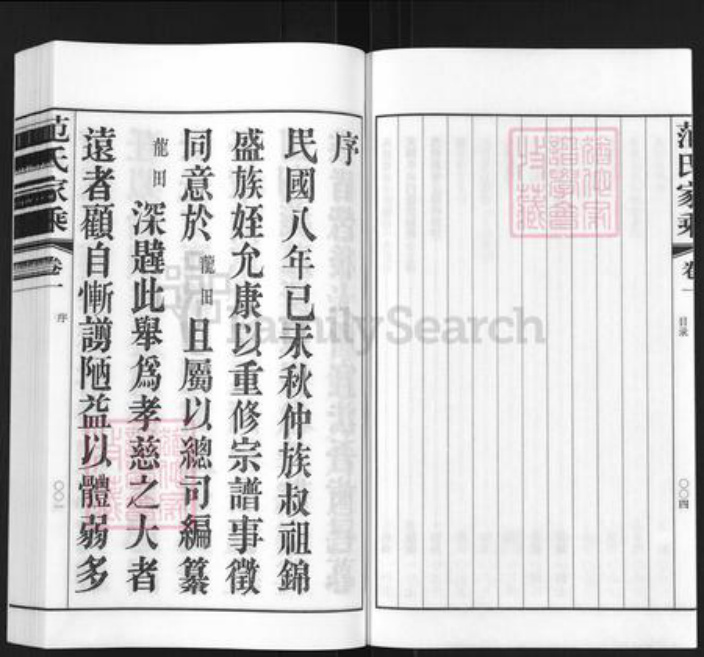 范氏家乘
卷一
目录
〇〇四
序
民國八年已未秋仲族叔祖錦
盛族姪允康以重修宗譜事徵
同意於龍田且屬以總司編纂
龍田深韙此舉爲孝慈之大者
遠者顧自慚謭陋益以體弱多
范氏家乘
卷一
序
〇〇一
FamilySearch